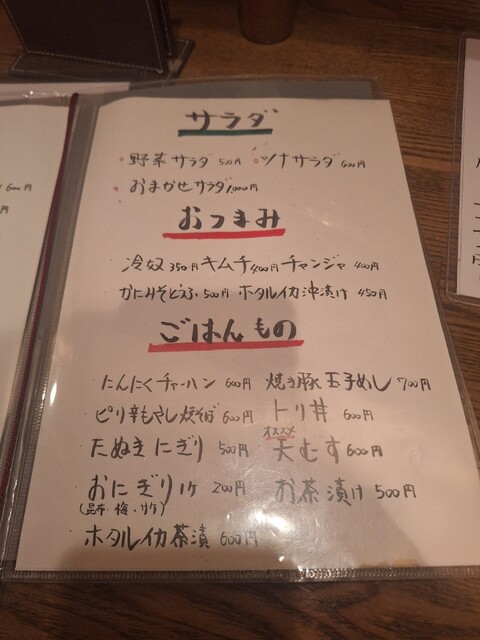 サラダ
・野菜サラダ 500円 ・ツナサラダ 600円
・おまかせサラダ1,000円
おつまみ
・冷奴350円 キムチ400円 チャンジャ 400円
・かにみそとうふ500円 ホタルイカ沖漬け 450円
ごはんもの
・にんにくチャーハン 600円 ・焼き豚玉子めし 700円
・ピリ辛もやし焼そば600円 ・トリ丼 600円
オススメ
・たぬきにぎり 500円 ・天むす600円
・おにぎり1ケ 200円 ・お茶漬け500円
(昆布・梅・サケ)
・ホタルイカ茶漬 600円
600円
円